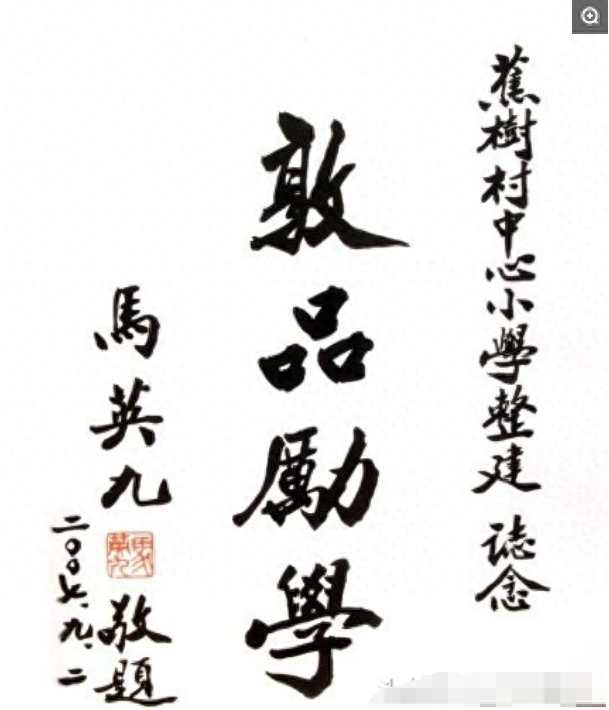 蕉樹村中心小學整建 誌念
敦品勵學
馬英九 敬題
馬英九
二〇〇七、九、二